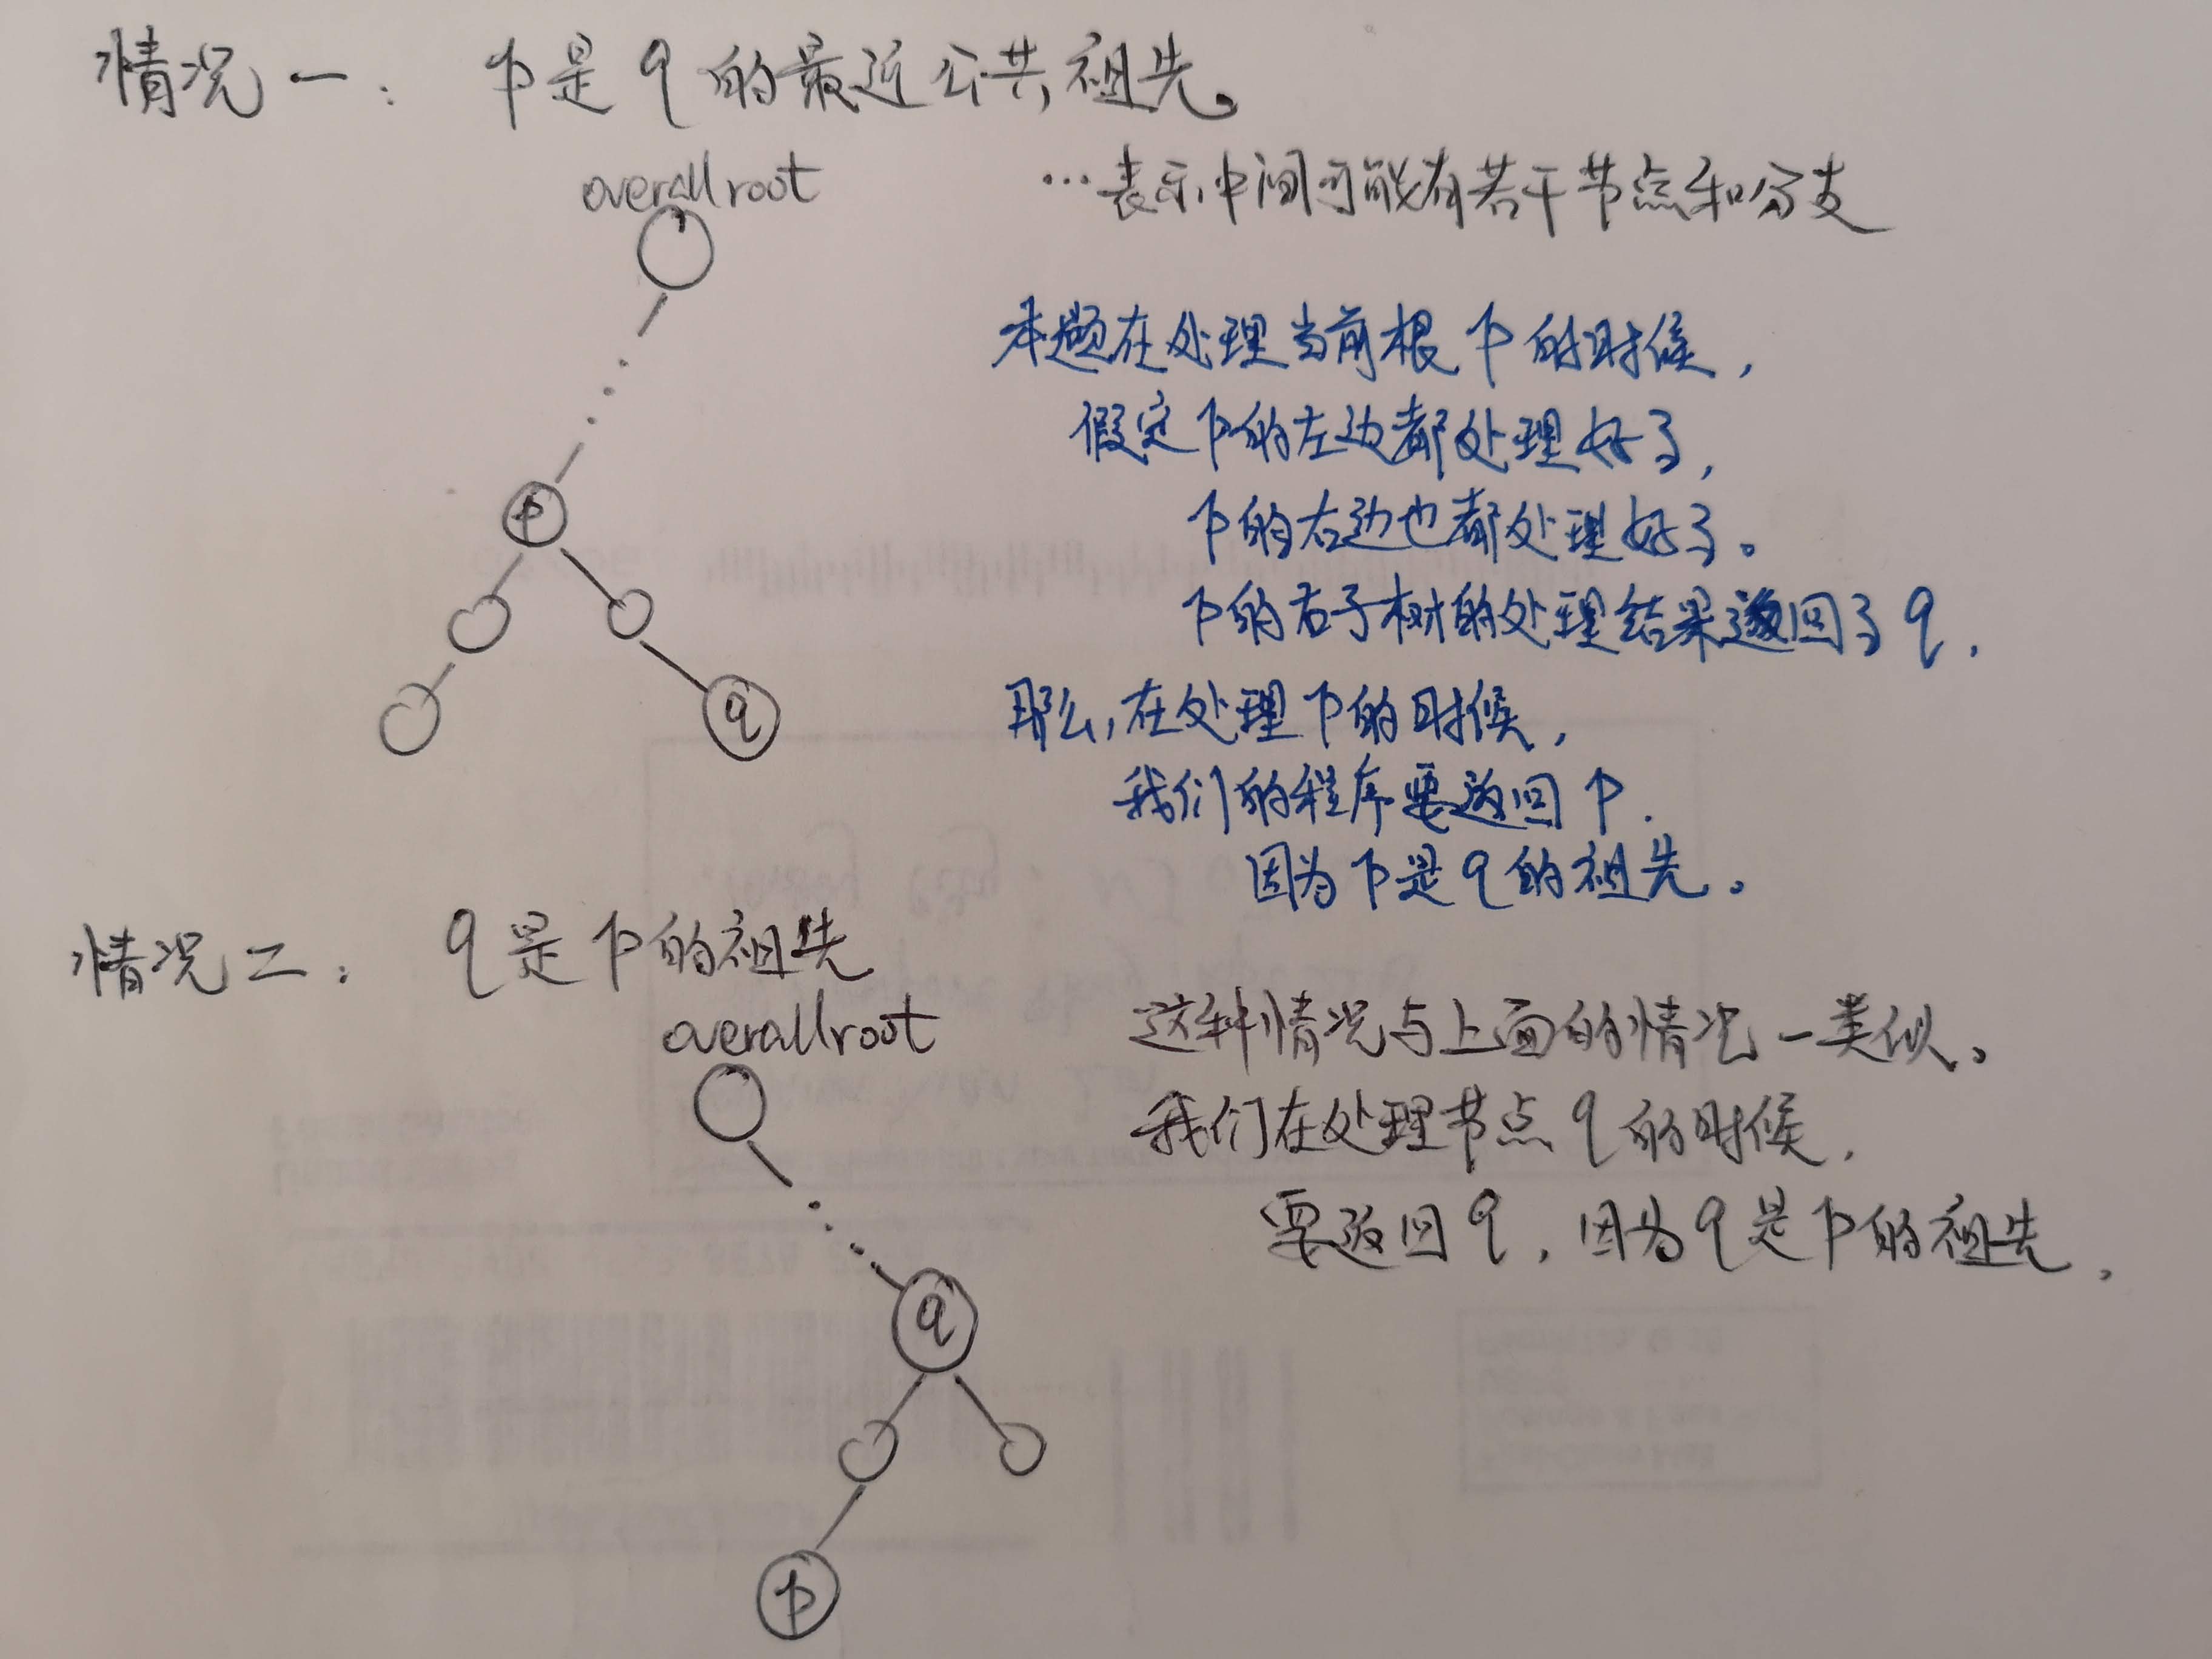 情况一： p是q的最近公共祖先。
overallroot
…表示中间可能有若干节点和分支
本题在处理当前根p的时候，
假定p的左边都处理好了，
p的右边也都处理好了。
p的右子树的处理结果返回了q，
p
q
那么，在处理p的时候，
我们的程序要返回p.
因为p是q的祖先。
情况二： q是p的祖先
overallroot
这种情况与上面的情况一类似。
我们在处理节点q的时候，
要返回q，因为q是p的祖先，
q
p